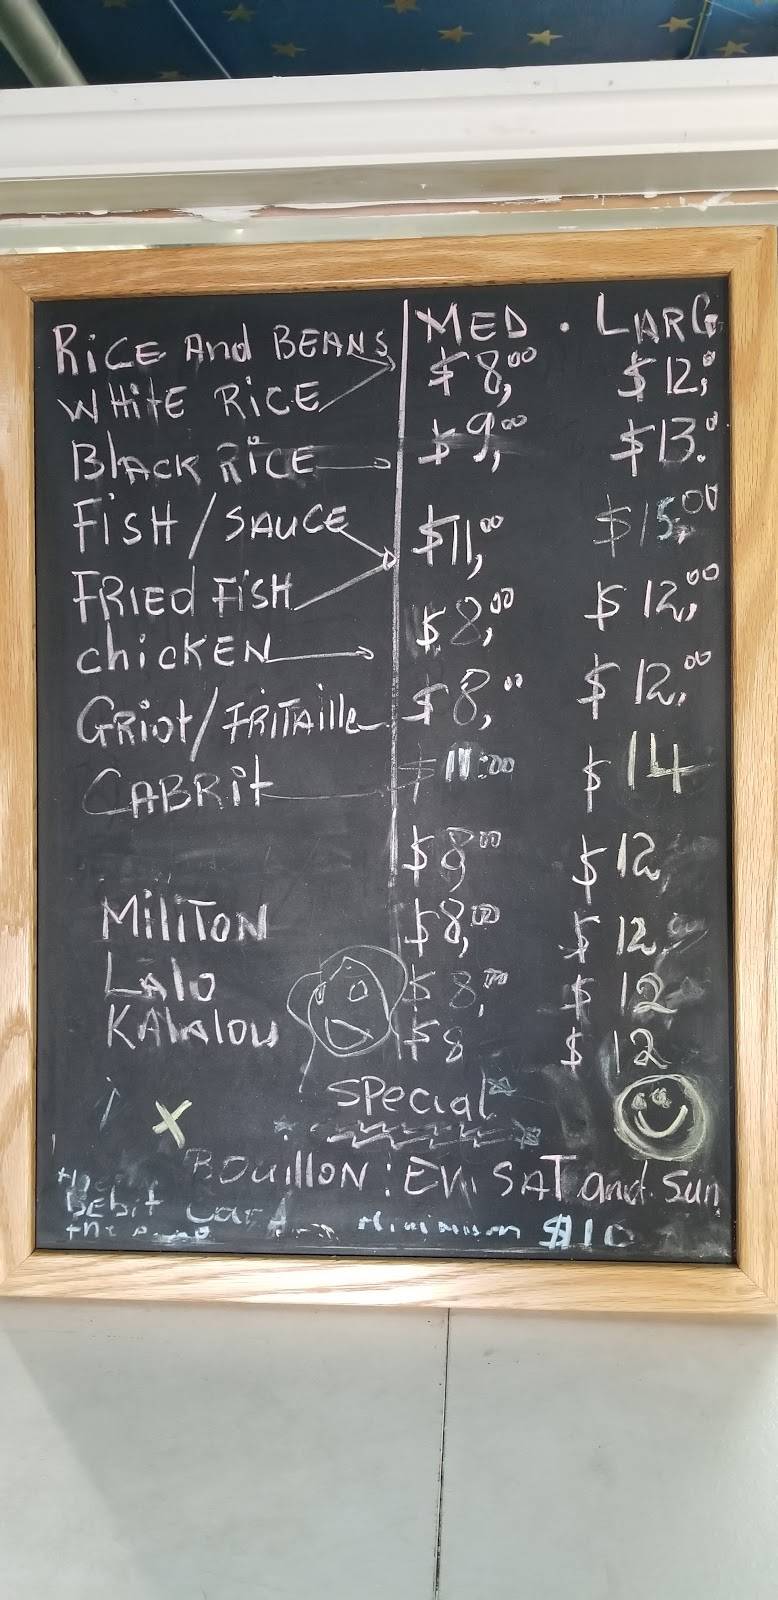 MED . LARG
RiCE And BEANS $8,00 $12,0
WHitE RiCE
BlACK RiCE $9,00 $13.0
FiSH/SAUCE $11,00 $15,00
FRiEd FiSH
chicKEN $8,00 $12,00
GRiot/FRiTAille $8,00 $12,00
CABRit $11:00 $14
$9,00 $12
MiliTON $8,00 $12
LAlo $8,00 $12
KAlAlou $8 $12
SPecial
BOuillON: EV. SAT and Sun
DEbit Card Minimum $10